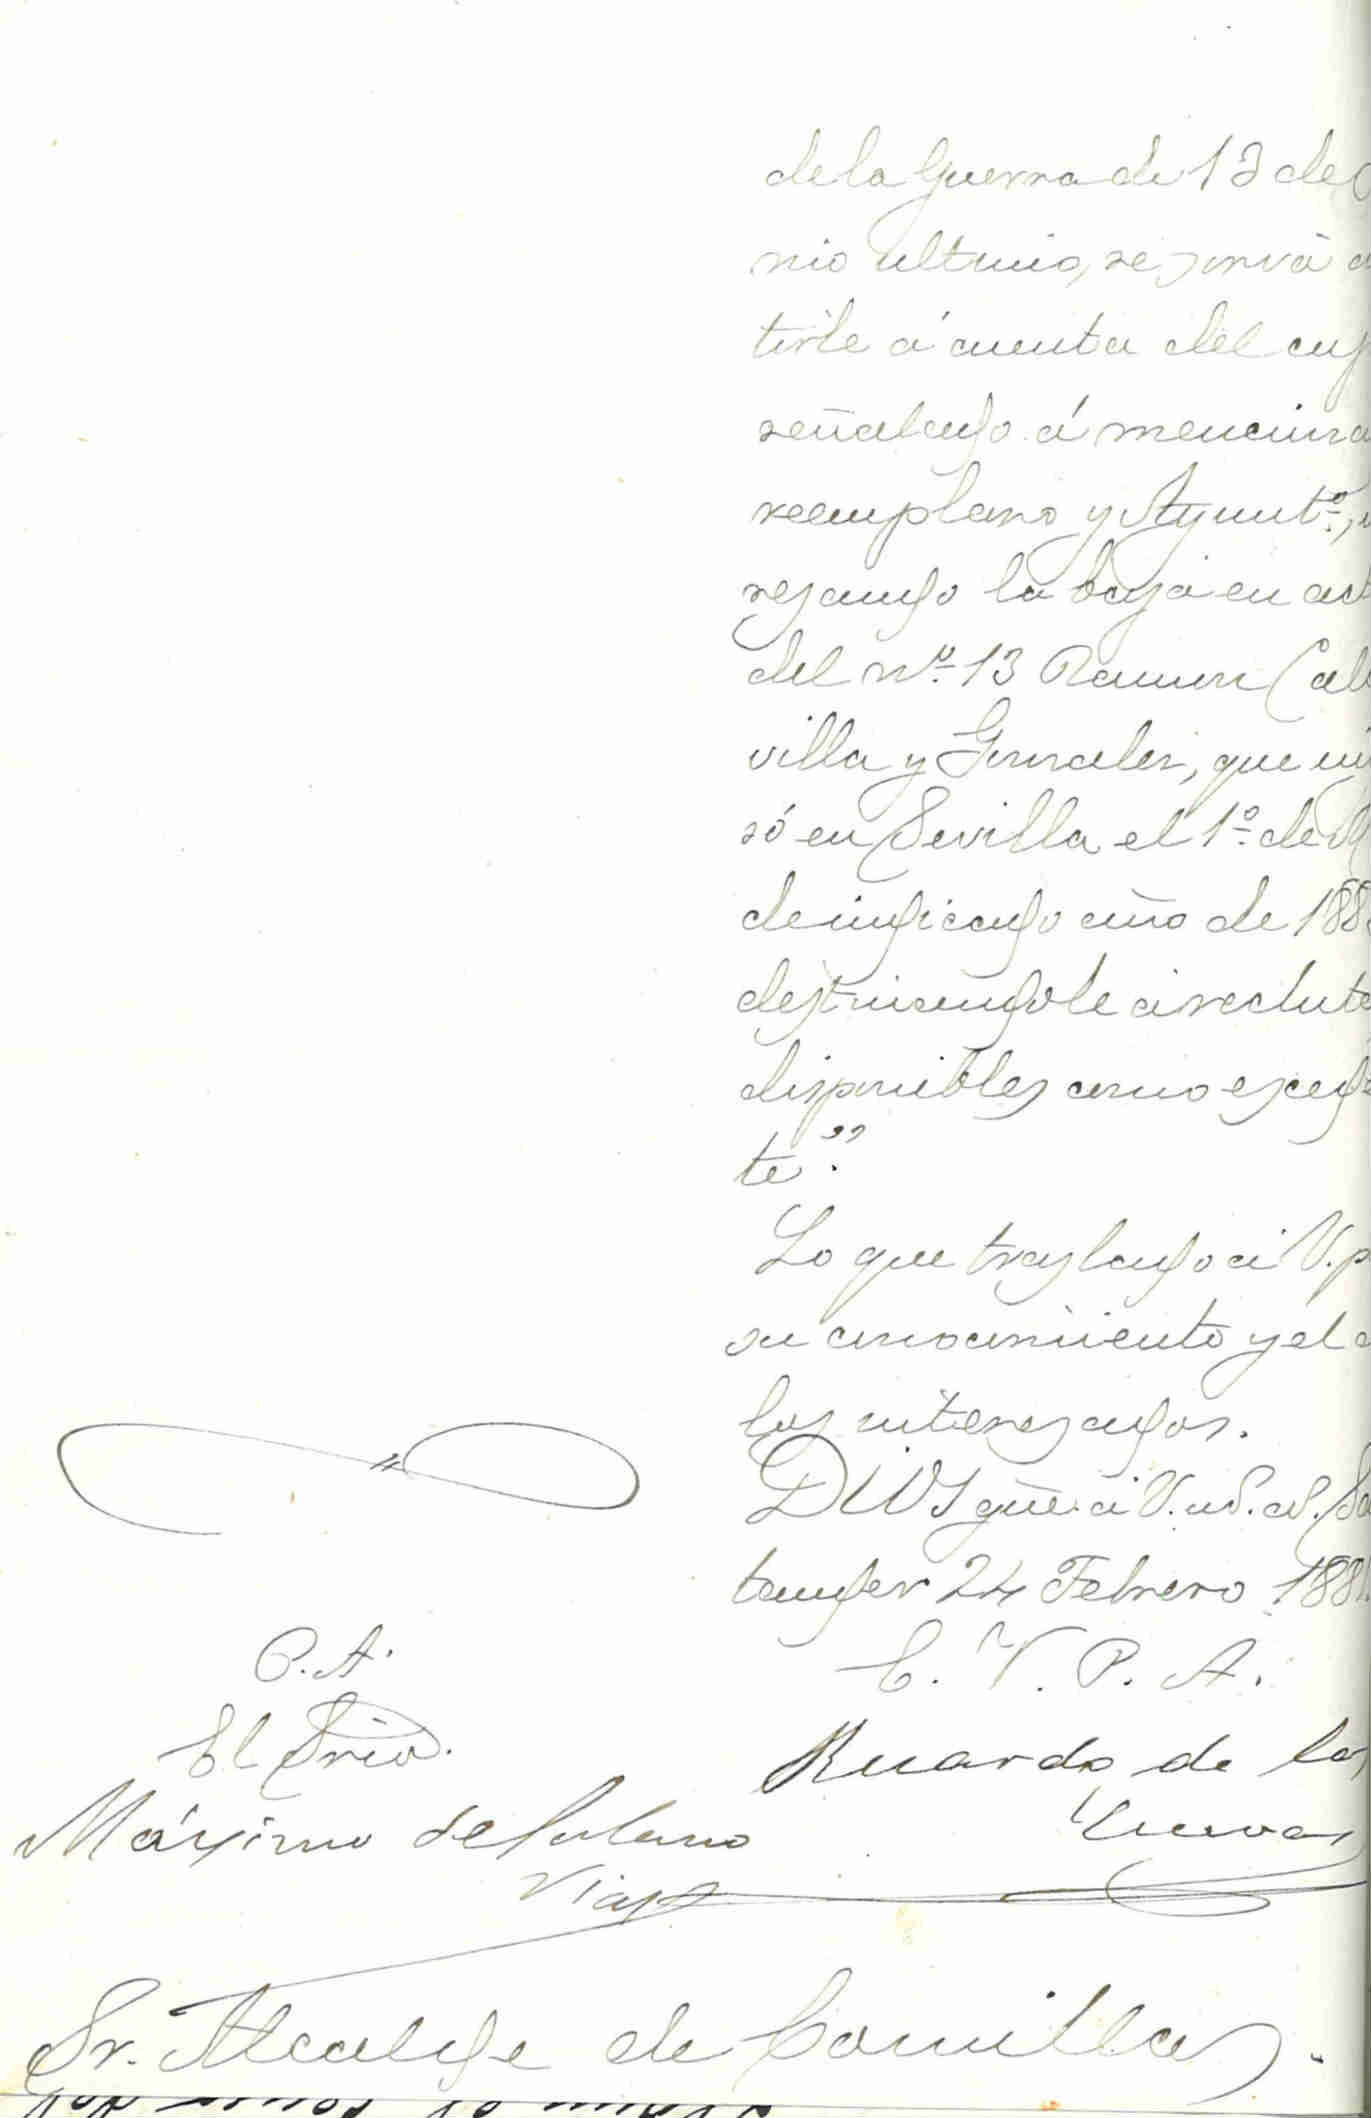 de la Guerra de 13 de
nio ultimo, se servirá
tirle á cuenta del cup
señalado á menciona
reemplazo y Ayuntº,
resando la baja en act
del nº 13 Ramon Cal
villa y Gonzalez, que in
só en Sevilla el 1º de
de indicado año de 188
destinandole á recluta
disponibles como esced
te".
Lo que traslado á V. p
su conocimiento y el
los interesados.
Dios gue á V. m. a. San
tander 24 Febrero 188
E. V. P. A.
P. A.
El Srio.
Ricardo de las
Cuevas
Máximo de Solano
Vial
Sr. Alcalde de Comillas.